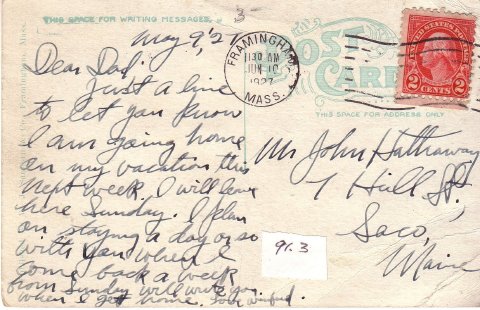 3-
THIS SPACE FOR WRITING MESSAGES.
May 9, '27
Dear Dad:
Just a line
to let you know
I am going home
on my vacation this
next week. I will leave
here Sunday. I plan
on staying a day or so
with you when I
come back a week
from Sunday will write you
when I get home. Your
FRAMINGHAM
1130 AM
JUN 10
1927
MASS.
POST
CARD
THIS SPACE FOR ADDRESS ONLY
UNITED STATES POSTAGE
2 CENTS 2
Mr John Hathaway
7 Hill St.
Saco,
Maine
91.3